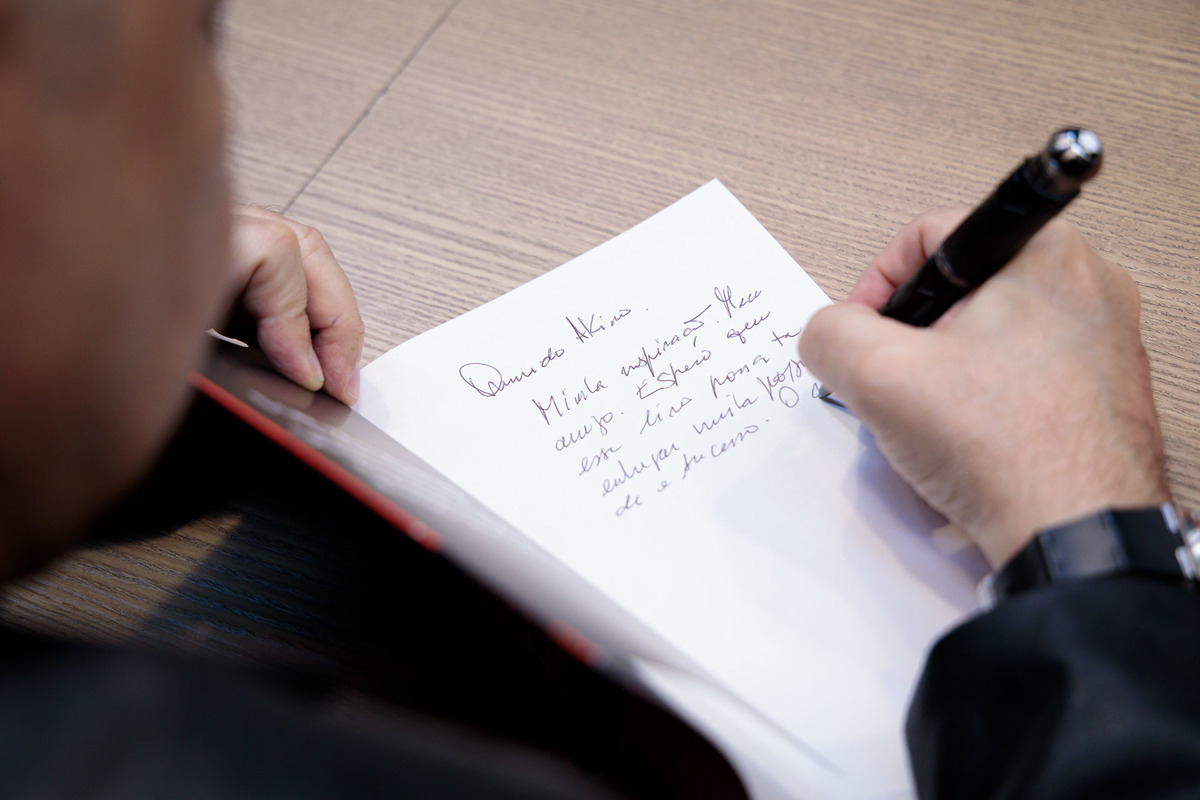 Querido Akino.
Minha inspiração. Meu
anjo. Espero que
esse livro possa te
entregar muita
de e sucesso. O